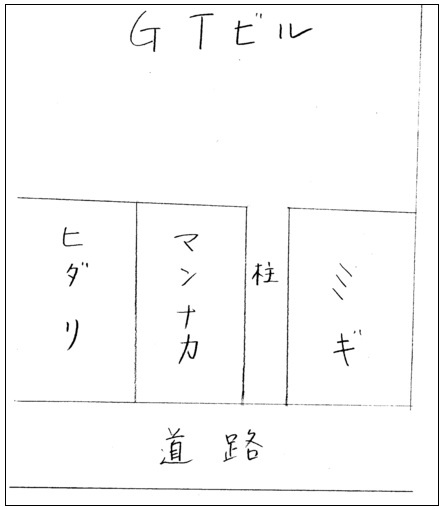 GTビル
ヒダリ
マンナカ
柱
ミギ
道路